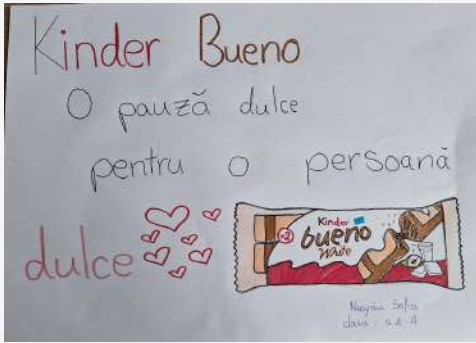 Kinder Bueno
O pauză dulce
pentru o persoană
dulce
Kinder
bueno
White
x2
Sofia
clasa : a 8 A